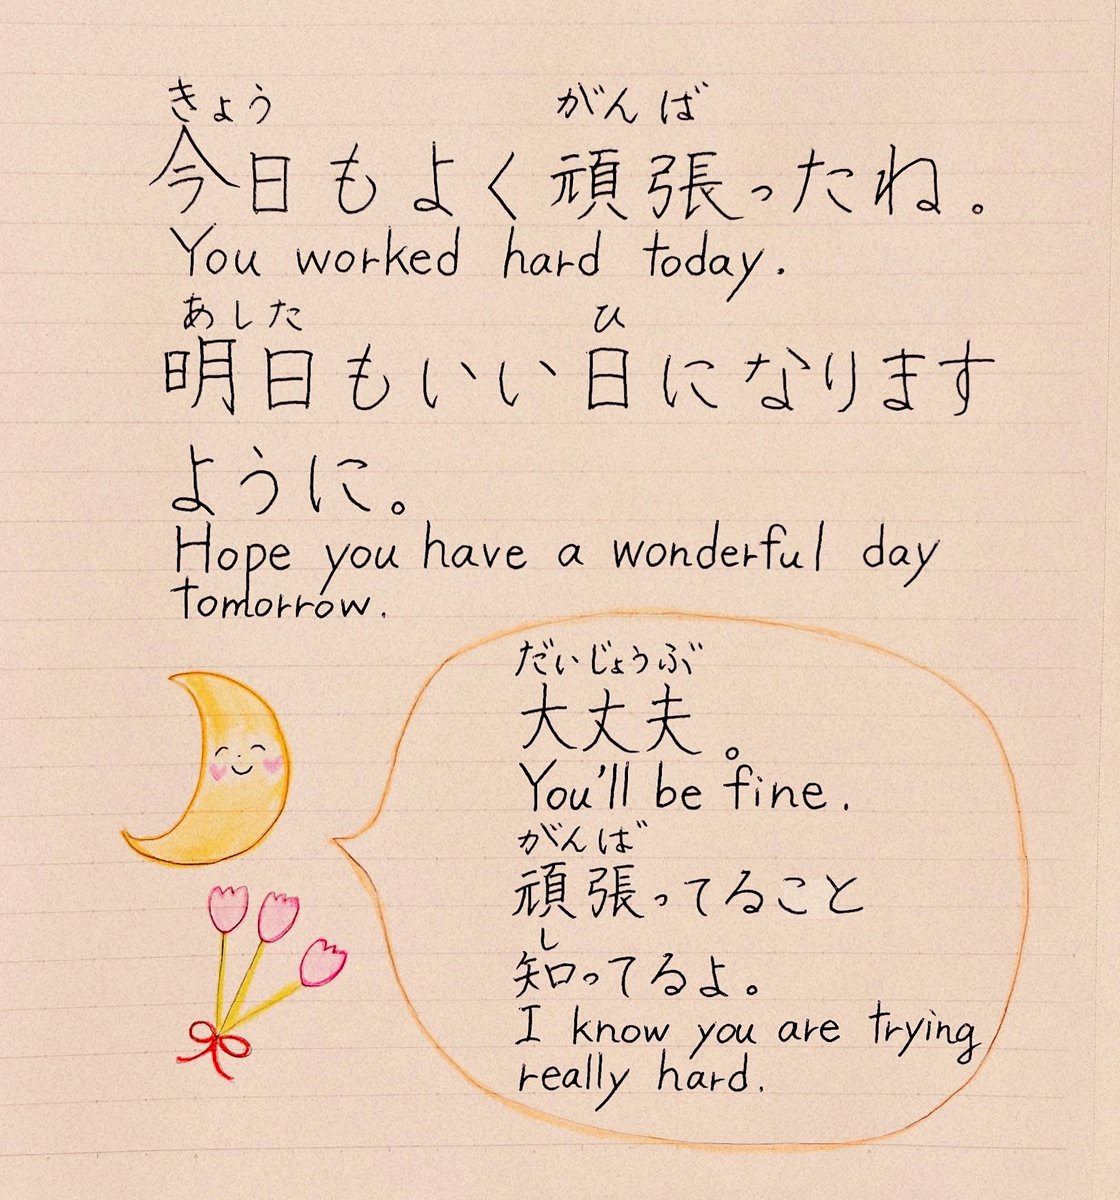 きょう がんば
今日もよく頑張ったね。
You worked hard today.
あした ひ
明日もいい日になります
ように。
Hope you have a wonderful day
tomorrow.
だいじょうぶ
大丈夫。
You'll be fine.
がんば
頑張ってること
し
知ってるよ。
I know you are trying
really hard.